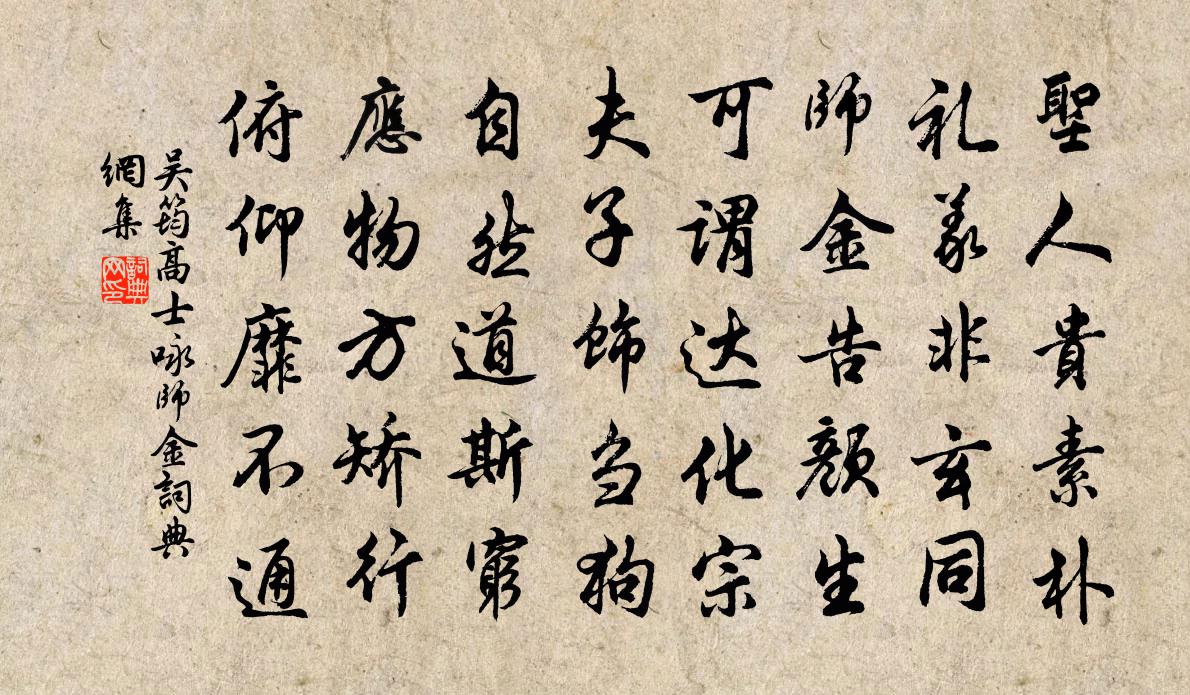 聖人貴素朴
礼義非玄同
師金告颜生
可謂达化宗
夫子飾刍狗
自然道斯窮
應物方矫行
俯仰靡不通
吴筠高士咏師金詞典
網集
詞典
网印